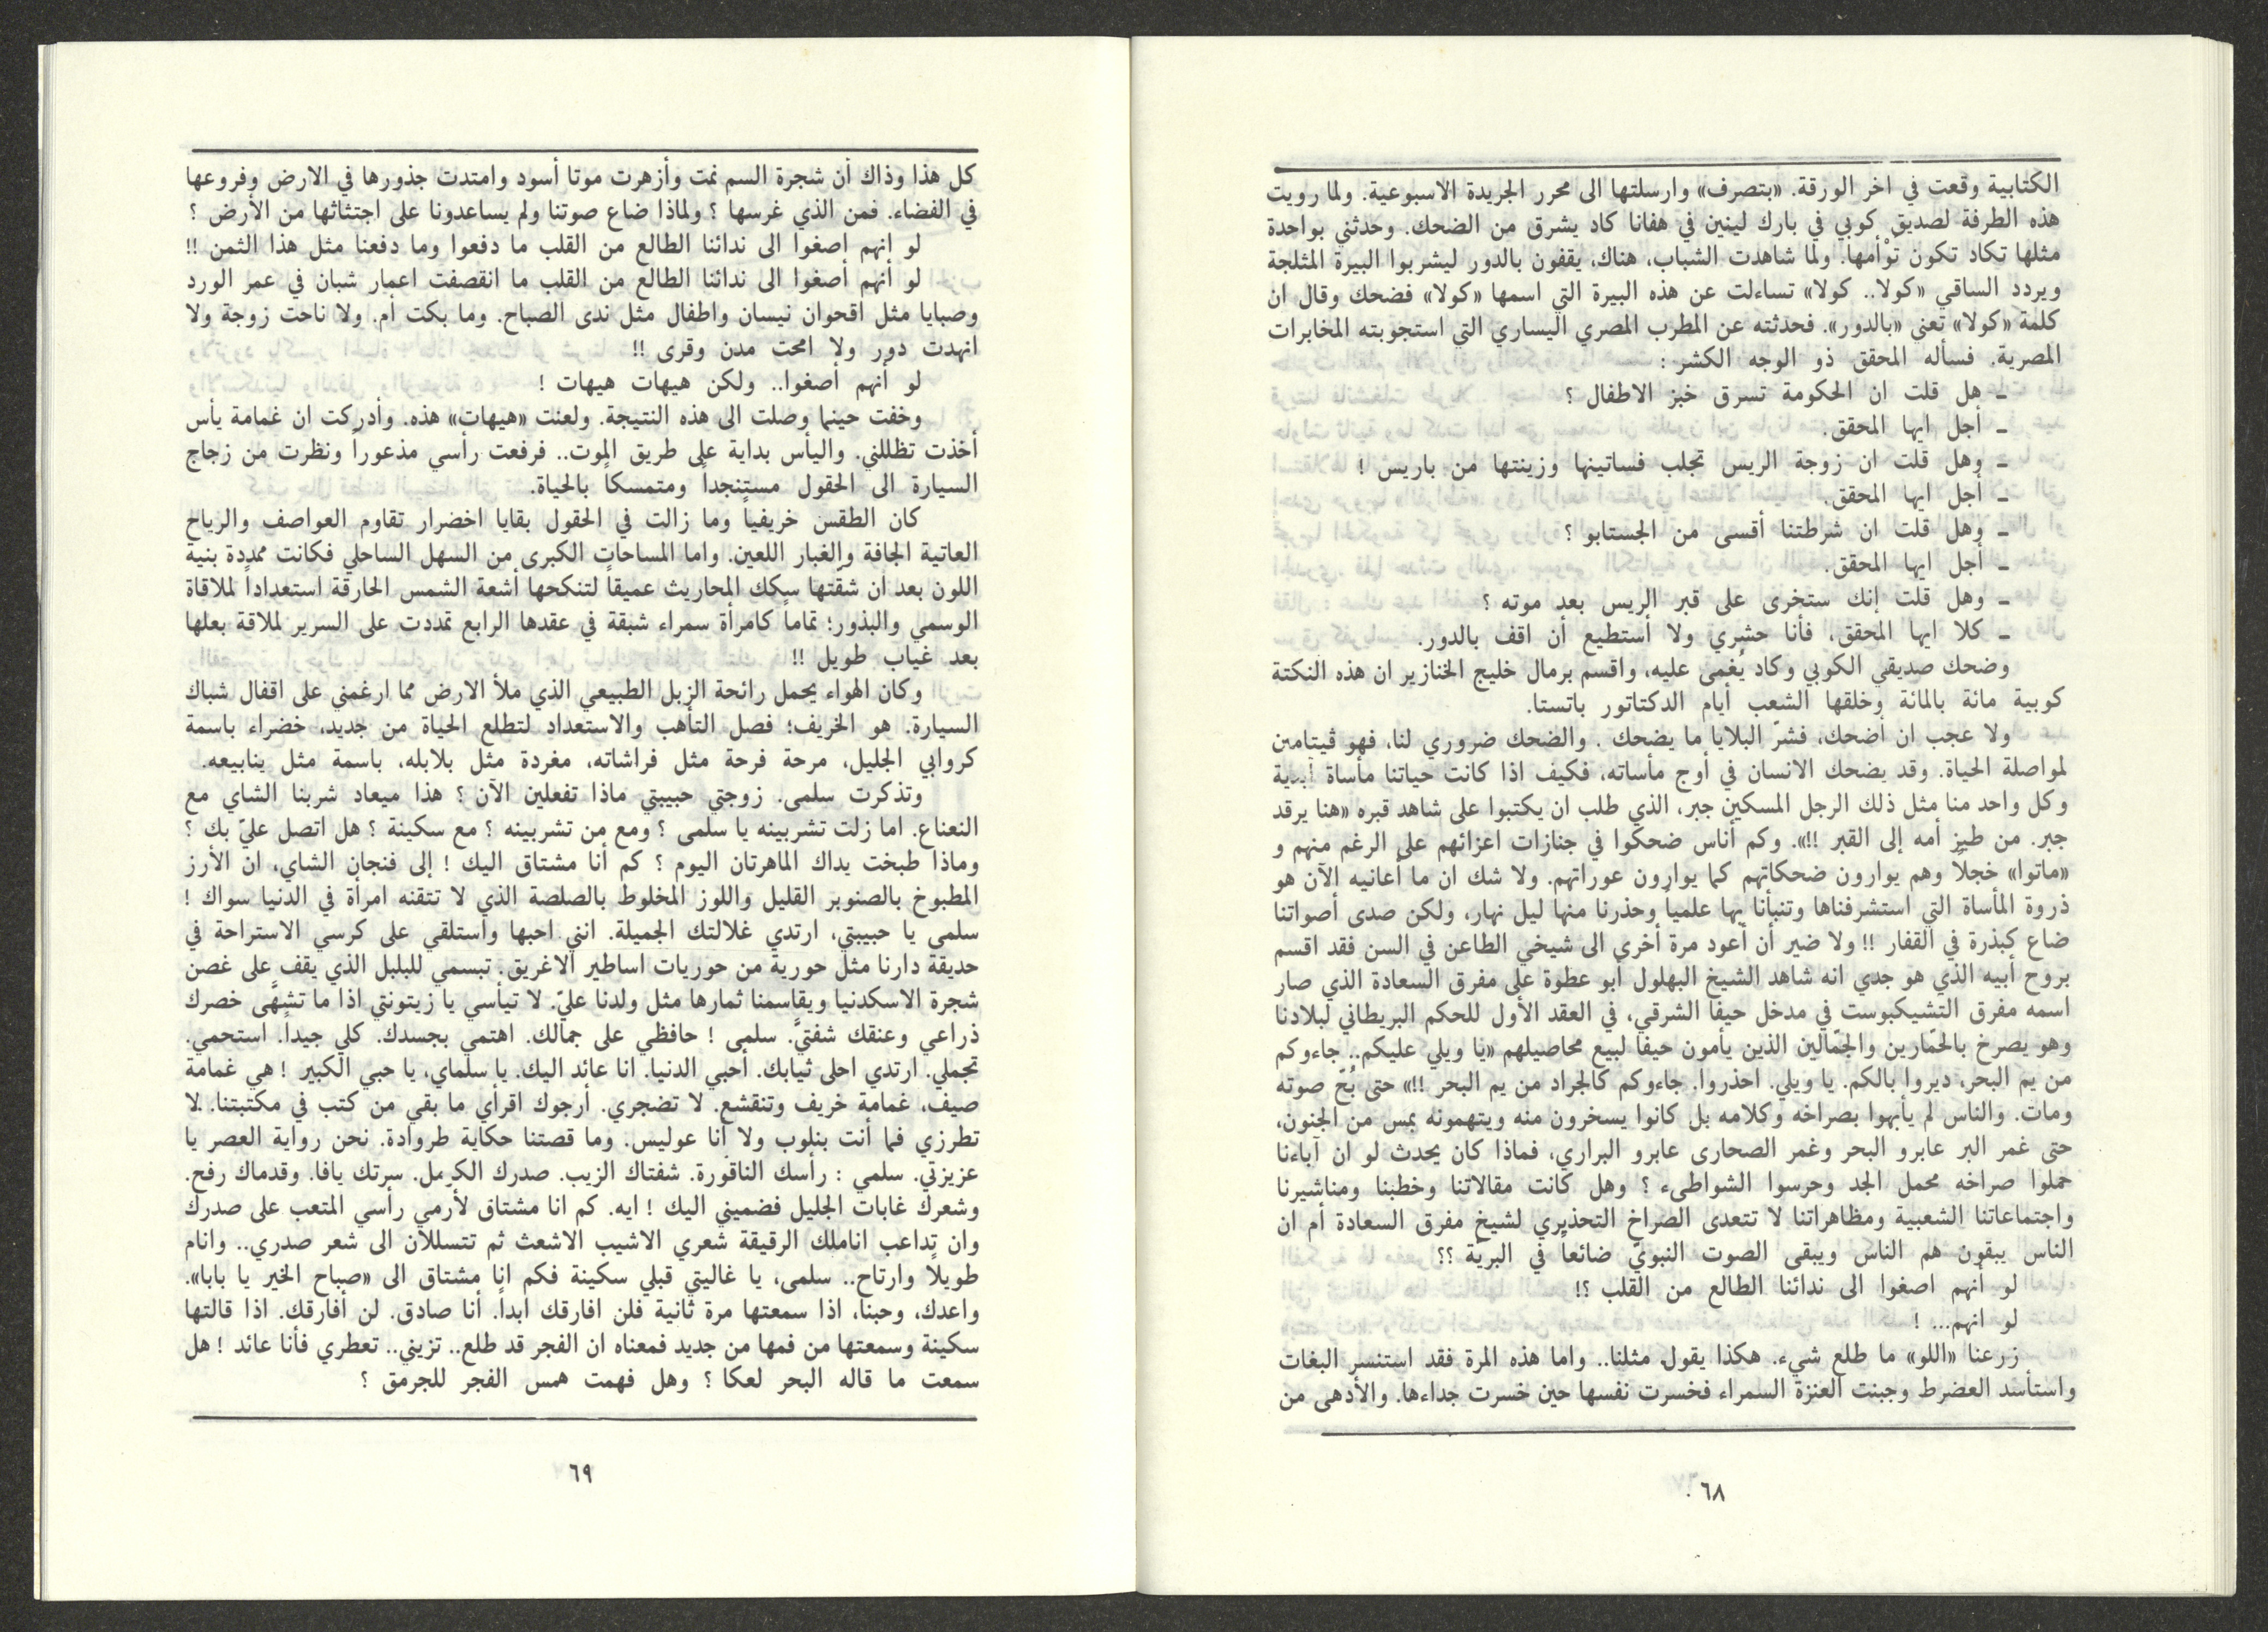 الكتابية وقعت في اخر الورقة. «بتصرف» وارسلتها الى محرر الجريدة الاسبوعية. ولما رويت
هذه الطرفة لصديق كوبي في بارك لينين في هفانا كاد يشرق من الضحك. وحدثني بواحدة
مثلها تكاد تكون تَوْأمها. ولما شاهدت الشباب، هناك، يقفون بالدور ليشربوا البيرة المثلجة
ويردد الساقي «كولا.. كولا» تساءلت عن هذه البيرة التي اسمها «كولا» فضحك وقال ان
كلمة «كولا» تعني «بالدور». فحدثته عن المطرب المصري اليساري التي استجوبته المخابرات
المصرية. فسأله المحقق ذو الوجه الكشر :
ـ هل قلت ان الحكومة تسرق خبز الاطفال ؟
ـ أجل ايها المحقق.
ـ وهل قلت ان زوجة الريس تجلب فساتينها وزينتها من باريس !
ـ أجل ايها المحقق.
ـ وهل قلت ان شرطتنا أقسى من الجستابو ؟
ـ أجل ايها المحقق.
ـ وهل قلت إنك ستخرى على قبر الريس بعد موته ؟
ـ كلا ايها المحقق، فأنا حشري ولا أستطيع أن اقف بالدور.
وضحك صديقي الكوبي وكاد يُغمى عليه، واقسم برمال خليج الخنازير ان هذه النكتة
كوبية مائة بالمائة وخلقها الشعب أيام الدكتاتور باتستا.
ولا عجب ان أضحك، فشرّ البلايا ما يضحك . والضحك ضروري لنا، فهو ڤيتامين
لمواصلة الحياة. وقد يضحك الانسان في أوج مأساته، فكيف اذا كانت حياتنا مأساة أبدية
وكل واحد منا مثل ذلك الرجل المسكين جبر، الذي طلب ان يكتبوا على شاهد قبره «هنا يرقد
جبر. من طيز أمه إلى القبر !!». وكم أناس ضحكوا في جنازات اعزائهم على الرغم منهم و
«ماتوا» خجلًا وهم يوارون ضحكاتهم كما يوارون عوراتهم. ولا شك ان ما أعانيه الآن هو
ذروة المأساة التي استشرفناها وتنبأنا بها علمياً وحذرنا منها ليل نهار، ولكن صدى أصواتنا
ضاع كبذرة في القفار !! ولا ضير أن أعود مرة أخرى الى شيخي الطاعن في السن فقد اقسم
بروح أبيه الذي هو جدي انه شاهد الشيخ البهلول أبو عطوة على مفرق السعادة الذي صار
اسمه مفرق التشيكبوست في مدخل حيفا الشرقي، في العقد الأول للحكم البريطاني لبلادنا
وهو يصرخ بالحمّارين والجمّالين الذين يأمون حيفا لبيع محاصيلهم «يا ويلي عليكم.. جاءوكم
من يم البحر، ديروا بالكم. يا ويلي. احذروا. جاءوكم كالجراد من يم البحر !!» حتى بُحّ صوته
ومات. والناس لم يأبهوا بصراخه وكلامه بل كانوا يسخرون منه ويتهمونه بمس من الجنون،
حتى غمر البر عابرو البحر وغمر الصحارى عابرو البراري، فماذا كان يحدث لو ان آباءنا
حملوا صراخه محمل الجد وحرسوا الشواطىء ؟ وهل كانت مقالاتنا وخطبنا ومناشيرنا
واجتماعاتنا الشعبية ومظاهراتنا لا تتعدى الصراخ التحذيري لشيخ مفرق السعادة أم ان
الناس يبقون هم الناس ويبقى الصوت النبويّ ضائعاً في البريّة ؟؟
لو أنهم اصغوا الى ندائنا الطالع من القلب ؟!
لو انهم... !
زرعنا «اللو» ما طلع شيء. هكذا يقول مثلنا.. واما هذه المرة فقد استنسر البغات
واستأسد العضرط وجبنت العنزة السمراء فخسرت نفسها حين خسرت جداءها. والأدهى من
٦٨
كل هذا وذاك أن شجرة السم نمت وأزهرت موتا أسود وامتدت جذورها في الارض وفروعها
في الفضاء. فمن الذي غرسها ؟ ولماذا ضاع صوتنا ولم يساعدونا على اجتثاثها من الأرض ؟
لو إنهم اصغوا الى ندائنا الطالع من القلب ما دفعوا وما دفعنا مثل هذا الثمن !!
لو أنهم أصغوا الى ندائنا الطالع من القلب ما انقصفت اعمار شبان في عمر الورد
وصبايا مثل اقحوان نيسان واطفال مثل ندى الصباح. وما بكت أم. ولا ناحت زوجة ولا
انهدت دور ولا امحت مدن وقرى !!
لو أنهم أصغوا.. ولكن هيهات هيهات !
وخفت حينما وصلت الى هذه النتيجة. ولعنت «هيهات» هذه. وأدركت ان غمامة يأس
أخذت تظللني. واليأس بداية على طريق الموت.. فرفعت رأسي مذعوراً ونظرت من زجاج
السيارة الى الحقول مستنجداً ومتمسكاً بالحياة.
كان الطقس خريفياً وما زالت في الحقول بقايا اخضرار تقاوم العواصف والرياح
العاتية الجافة والغبار اللعين. واما المساحات الكبرى من السهل الساحلي فكانت ممددة بنية
اللون بعد ان شقّتها سكك المحاريث عميقاً لتنكحها أشعة الشمس الحارقة استعداداً لملاقاة
الوسمي والبذور؛ تماماً كامرأة سمراء شبقة في عقدها الرابع تمددت على السرير لملاقة بعلها
بعد غياب طويل !!
وكان الهواء يحمل رائحة الزبل الطبيعي الذي ملأ الارض مما ارغمني على اقفال شباك
السيارة. هو الخريف؛ فصل التأهب والاستعداد لتطلع الحياة من جديد، خضراء باسمة
كروابي الجليل، مرحة فرحة مثل فراشاته، مغردة مثل بلابله، باسمة مثل ينابيعه.
وتذكرت سلمى. زوجتي حبيبتي ماذا تفعلين الآن ؟ هذا ميعاد شربنا الشاي مع
النعناع. اما زلت تشربينه يا سلمى ؟ ومع من تشربينه ؟ مع سكينة ؟ هل اتصل عليّ بك ؟
وماذا طبخت يداك الماهرتان اليوم ؟ كم أنا مشتاق اليك ! إلى فنجان الشاي، ان الأرز
المطبوخ بالصنوبر القليل واللوز المخلوط بالصلصة الذي لا تتقنه امرأة في الدنيا سواك !
سلمى يا حبيبتي، ارتدي غلالتك الجميلة. انني احبها واستلقي على كرسي الاستراحة في
حديقة دارنا مثل حورية من حوريات اساطير الاغريق. تبسمي للبلبل الذي يقف على غصن
شجرة الاسكدنيا ويقاسمنا ثمارها مثل ولدنا عليّ. لا تيأسي يا زيتونتي اذا ما تشهَّى خصرك
ذراعي وعنقك شفتيَّ. سلمى ! حافظي على جمالك. اهتمي بجسدك. كلي جيداً. استحمي.
تجملي. ارتدي احلى ثيابك. أحبي الدنيا. انا عائد اليك. يا سلماي، يا حبي الكبير ! هي غمامة
صيف، غمامة خريف وتنقشع. لا تضجري. أرجوك اقرأي ما بقي من كتب في مكتبتنا. لا
تطرزي فما أنت بنلوب ولا أنا عوليس. وما قصتنا حكاية طروادة. نحن رواية العصر يا
عزيزتي. سلمي : رأسك الناقورة. شفتاك الزيب. صدرك الكرمل. سرتك يافا. وقدماك رفح.
وشعرك غابات الجليل فضميني اليك ! ايه. كم انا مشتاق لأرمي رأسي المتعب على صدرك
وان تداعب اناملك الرقيقة شعري الاشيب الاشعث ثم تتسللان الى شعر صدري.. وانام
طويلًا وارتاح.. سلمى، يا غاليتي قبلي سكينة فكم انا مشتاق الى «صباح الخير يا بابا».
واعدك، وحبنا، اذا سمعتها مرة ثانية فلن افارقك ابداً. أنا صادق. لن أفارقك. اذا قالتها
سكينة وسمعتها من فمها من جديد فمعناه ان الفجر قد طلع.. تزيني.. تعطري فأنا عائد ! هل
سمعت ما قاله البحر لعكا ؟ وهل فهمت همس الفجر للجرمق ؟
٦٩